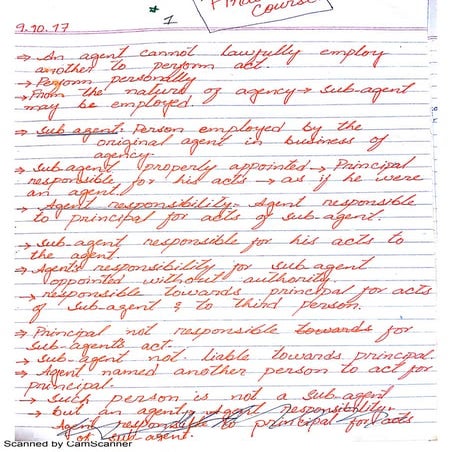 * 1
Course
9.10.17
→ An agent cannot lawfully employ
another to perform act.
→ Perform personally
→ From the nature of agency → sub-agent
may be employed.
→ Sub agent: Person employed by the
original agent in business of
agency.
→ Sub-agent properly appointed → Principal
responsible for his acts → as if he were
an agent.
→ Agent responsibility: Agent responsible
to principal for acts of sub-agent.
→ Sub-agent responsible for his acts to
the agent.
→ Agent's responsibility for sub agent
appointed without authority.
→ responsible towards principal for acts
of sub-agent & to third person.
→ Principal not responsible towards for
sub-agent's act.
→ Sub-agent not liable towards principal.
→ Agent named another person to act for
principal.
→ Such person is not a sub-agent
→ but an agent. → Agent responsibility:
Agent responsible to principal for acts
of sub-agent.
Scanned by CamScanner